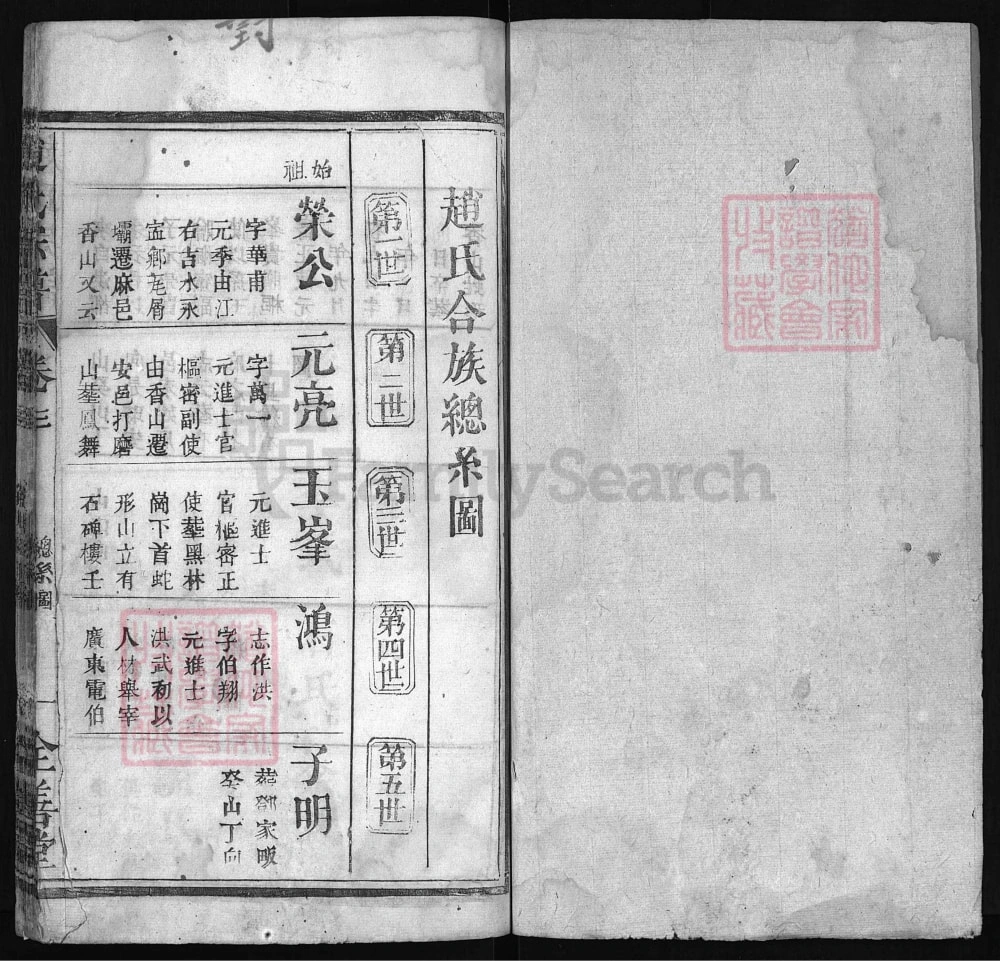 趙氏合族總系圖
第一世
第二世
第三世
第四世
第五世
始祖
榮公
字華甫
元季由江
右吉水永
香山又云
壩遷麻邑
元亮
字萬一
元進士官
樞密副使
由香山遷
安邑打磨
山塟鳳舞
玉峯
元進士
官樞密正
使塟黑林
崗下首蛇
形山立有
石碑樓壬
鴻
志作洪
字伯翔
元進士
洪武初以
人材舉宰
廣東電伯
子明
塟鄧家畈
癸山丁向
卷三
總系圖
一
全善堂
FamilySearch